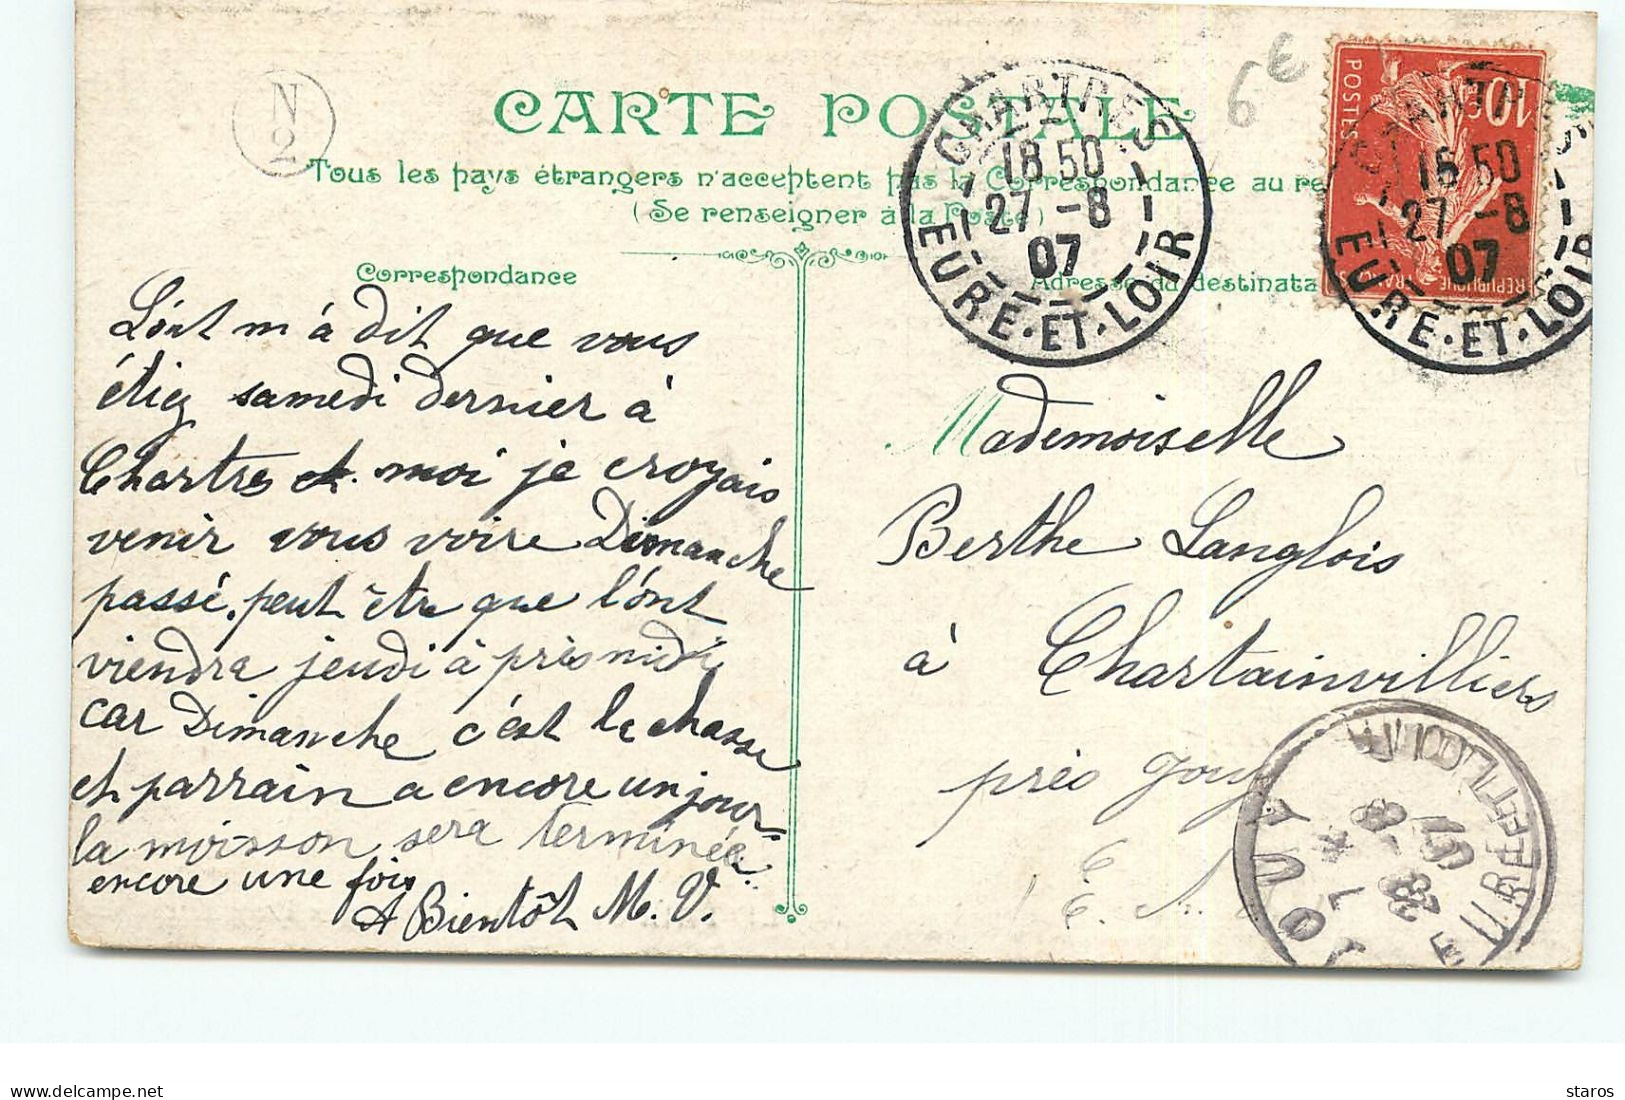 N
2
CARTE POSTALE
6€
Tous les pays étrangers n'acceptent pas la Correspondance au re
(Se renseigner à la Poste)
Correspondance
Adresse du destinata
CHARTRES
18 50
27 -8
07
EURE-ET-LOIR
10c
POSTES
REPUBLIQUE FRANÇAISE
CHARTR
18 50
27 -8
07
EURE-ET-LOIR
L'ont m'à dit que vous
étiez samedi dernier à
Chartres et moi je croyais
venir vous voire Dimanche
passé, peut être que l'ont
viendra jeudi à près midi
car Dimanche c'est la chasse
et parrain a encore un jour
la moisson sera terminée
encore une fois
A Bientôt M. V.
Mademoiselle
Berthe Langlois
à Chartainvilliers
près Jouy
E.
JOUY
7 *
28 -8
07
EURE-ET-LOIR
Delcampe.net
staros